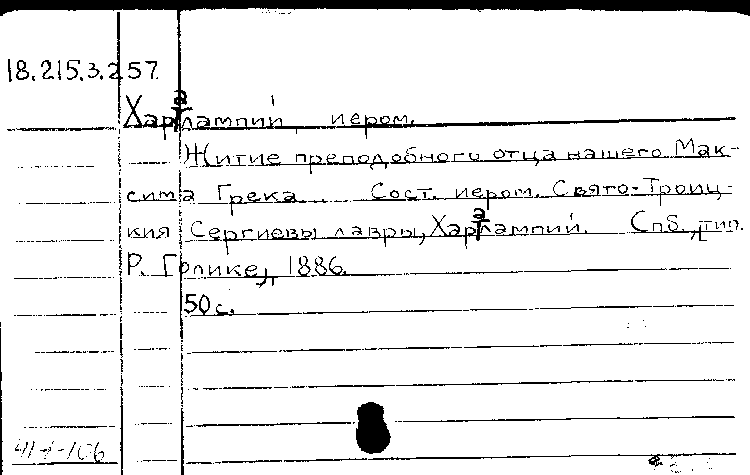 18.215.3.257.
Харалампий, иером.
Житие преподобного отца нашего Мак-
сима Грека. Сост. иером. Свято-Троиц-
кия Сергиевы лавры, Харалампий. Спб., [тип.
Р. Голике], 1886.
50 с.